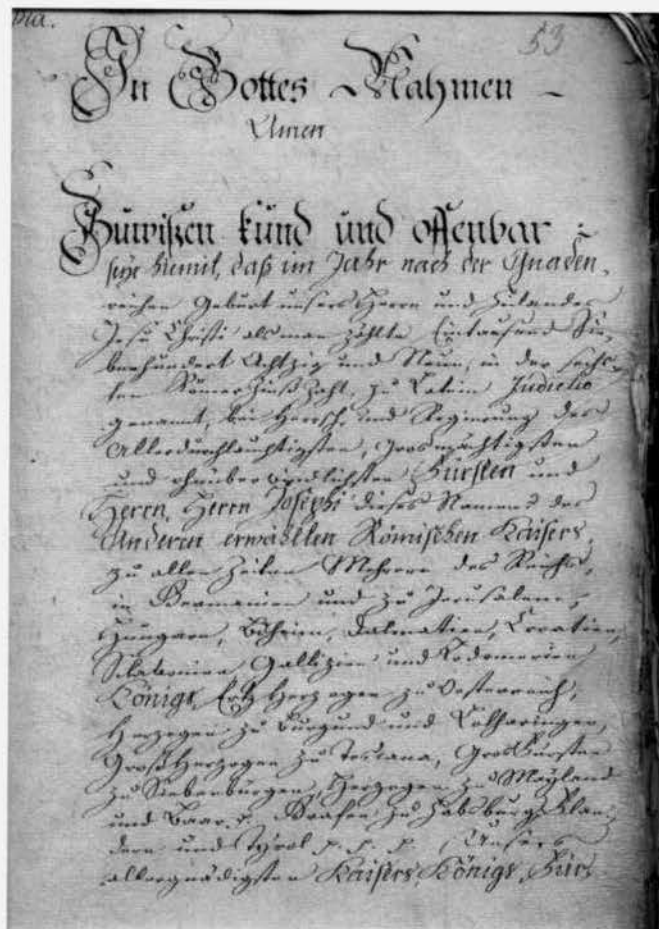 53
In Gottes Nahmen
Amen
Zuwißen kund und offenbar :
seye hiemit, daß im Jahr nach der Gnaden,
reichen Geburt unsers Herrn und Heilandes
Jesu Christi als man zählte Eintausend Sie,
benhundert Achtzig und Neun, in der sechs,
ten Römer Zinß Zahl, zu Latein Indictio
genannt, bei Herrsch- und Regierung des
Allerdurchlauchtigsten, Grosmächtigsten
und ohnüberwindlichsten Fürsten und
Herrn, Herrn Josephi dieses Namens des
Anderen erwählten Römischen Kaisers,
zu allen Zeiten Mehrern des Reichs,
in Germanien und zu Jerusalem,
Hungarn, Böheim, Dalmatien, Croatien,
Sclavonien, Gallizien und Lodomerien
Königs, Ertz Herzogen zu Oesterreich,
Herzogen zu Burgund und Lotharingen,
Groß Herzogen zu Toscana, Gros Fürsten
zu Siebenbürgen, Herzogen zu Mayland
und Baar p. Grafen zu Habsburg, Flan,
dern und Tyrol p. p. p. Unsers
allergnädigsten Kaisers, Königs, Für,